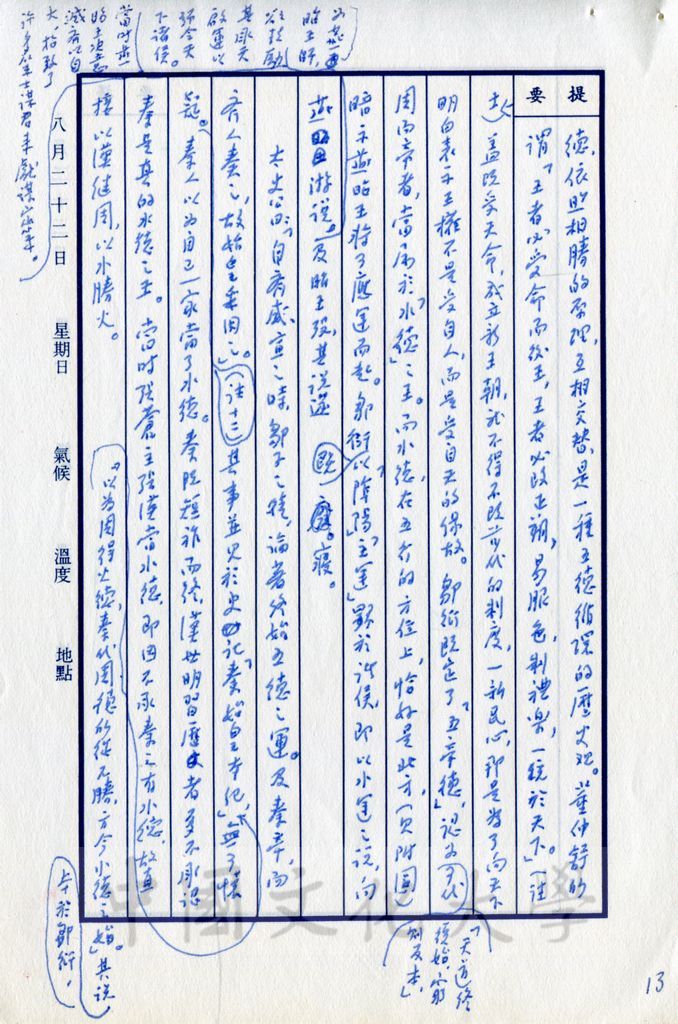 提要
德，依照相勝的原理，互相交替，是一種五德循環的歷史觀。董仲舒的
謂「王者必受命而後王，王者必改正朔，易服色，制禮樂，一統於天下。」（註
蓋既受天命，成立新王朝，就不得不改前代的制度，一新民心，那是為了向天下
明白表示王權不是受自人，而是受自天的緣故。鄒衍既定了「五帝德」，認為「代
周而帝者，當屬於「水德」之王。而水德在五行的方位上，恰好是北方，一見附圖
暗示燕昭王將了應運而起。鄒衍以「陰陽主運」顯於諸侯，即以水運之說，向
燕昭游說，及昭王歿，其說遂寢。
太史公曰：「自齊威、宣之時，鄒子之徒，論著終始五德之運。及秦帝，而
齊人奏之，故始皇采用之。」（註十二）其事並見於史記「秦始皇本紀」，無可懷
疑。秦人以為自己一家當了水德。秦既短祚而終，漢世明習歷者多不承認
秦是真的水德之王。當時張蒼主張漢當水德，即因不承秦之有水德，故直
接以漢繼周，以水勝火。
「以為周得火德，秦代周德，從所不勝，方今水德之始。」其說
本於鄒衍，
「天道終
始
八月二十二日 星期日 氣候 溫度 地點
當時
下諸侯。
13
中國文化大學